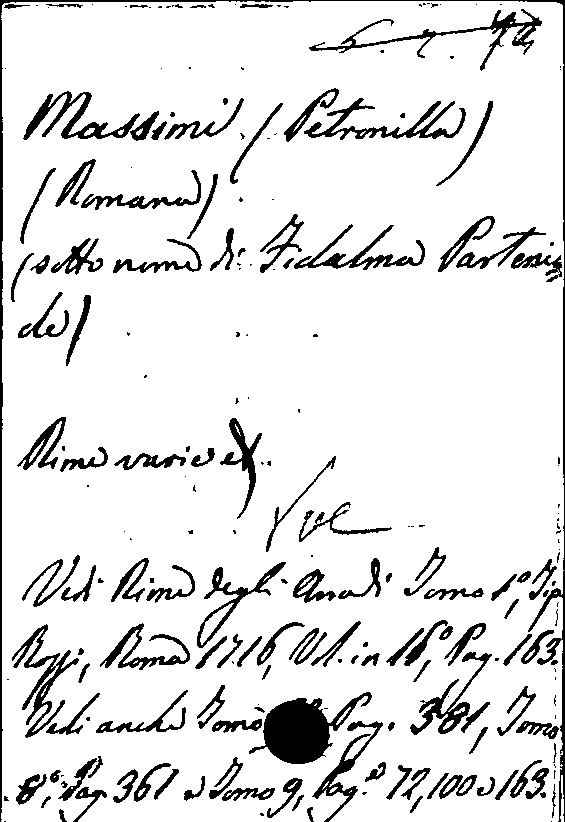 6. 7. 72
Massimi (Petronilla)
(Romana)
(sotto nome di Fidalma Parteni-
de)
Rime varie
Vedi Rime degli Arcadi Tomo 1º, Tip.
Rossi, Roma 1716, Vol. in 16º, Pag. 163.
Vedi anche Tomo Pag. 381, Tomo
8º, Pag. 361 e Tomo 9, Pag.e 72, 100 e 163.